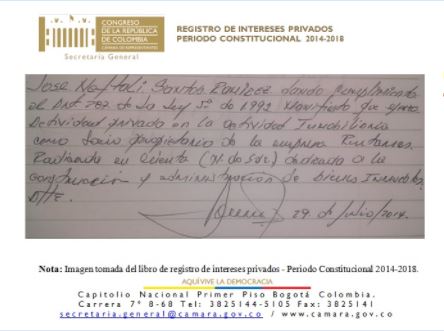 CONGRESO
DE LA REPÚBLICA
DE COLOMBIA
CÁMARA DE REPRESENTANTES
Secretaría General
REGISTRO DE INTERESES PRIVADOS
PERIODO CONSTITUCIONAL 2014-2018
Jose Neftali Santos Ramirez dando cumplimiento
al Art. 287 de la Ley 5ª de 1992 Manifiesto que ejerzo
Actividad privada en la actividad Inmobiliaria
como Socio propietario de la empresa
Radicada en dedicada a la
Construcción y administración de bienes Inmuebles.
Atte.
29 de Julio/2014.
Nota: Imagen tomada del libro de registro de intereses privados - Periodo Constitucional 2014-2018.
AQUÍVIVE LA DEMOCRACIA
Capitolio Nacional Primer Piso Bogotá Colombia.
Carrera 7° 8-68 Tel: 3825144-5105 Fax: 3825141
secretaria.general@camara.gov.co / www.camara.gov.co